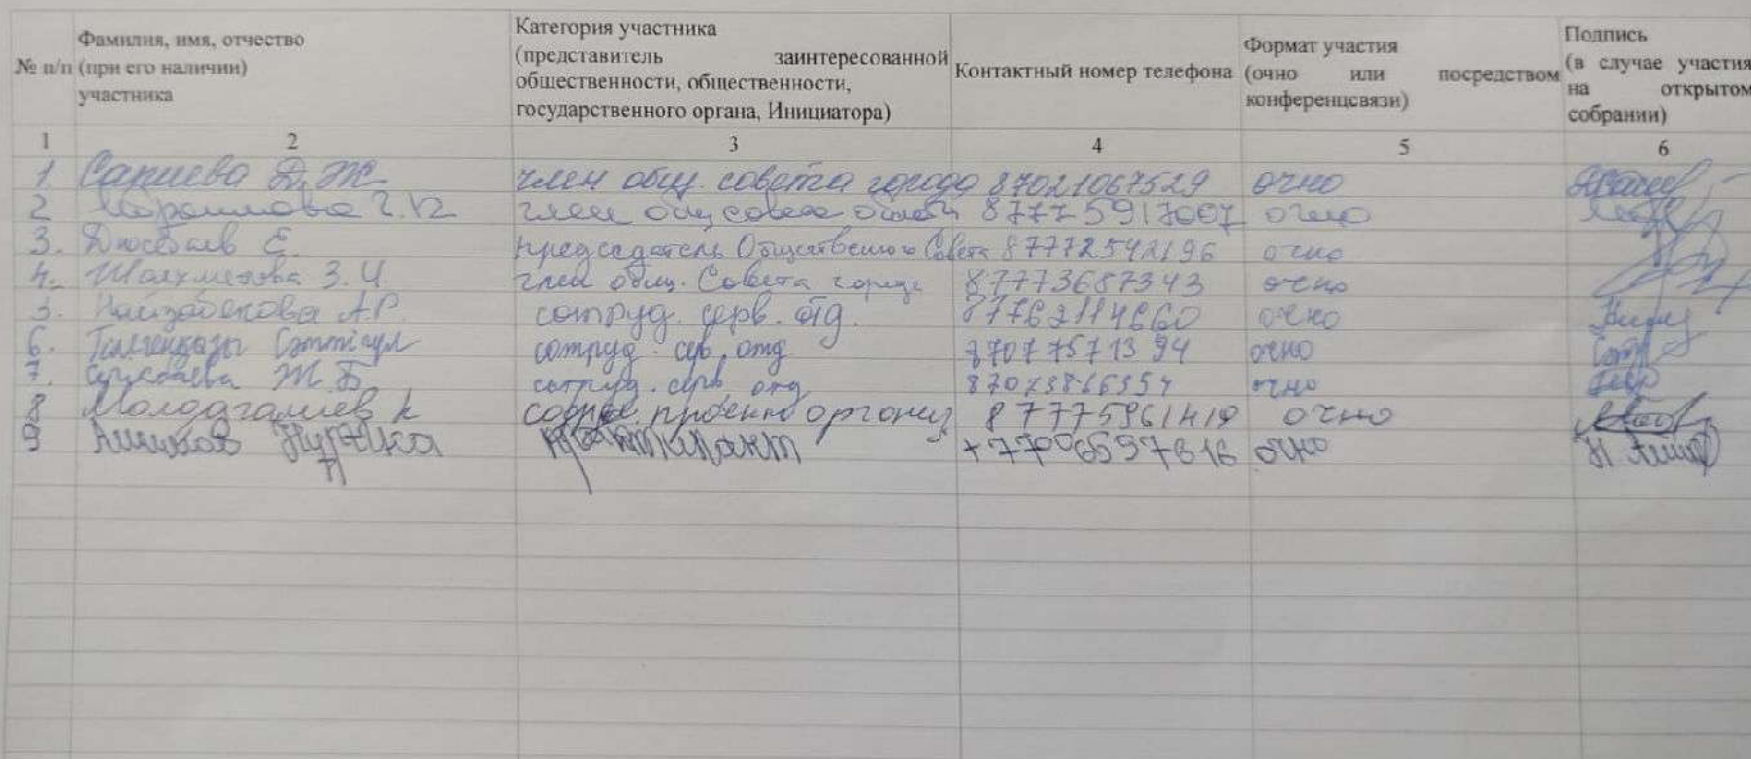 № п/п Фамилия, имя, отчество (при его наличии) участника Категория участника (представитель заинтересованной общественности, общественности, государственного органа, Инициатора) Контактный номер телефона Формат участия (очно или посредством конференцсвязи) Подпись (в случае участия на открытом собрании)
1 2 3 4 5 6
1 Сариева Д.Ж. член общ. совета города 87021067529 очно
2 член общ совета 87775917007 очно
3. Дюсебаев Е. председатель Общественного Совета 87772542196 очно
4. Шаяхметова З.И член общ. Совета города 87773687343 очно
5. Найзабекова А.Р. сотруд. серв. отд. 87762114660 очно
6. сотруд. серв. отд 87077571394 очно
7. Ж.Б. сотруд. серв отд очно
8 Молдагалиев К проектн организ 87775961419 очно
9 практикант +77006597616 очно